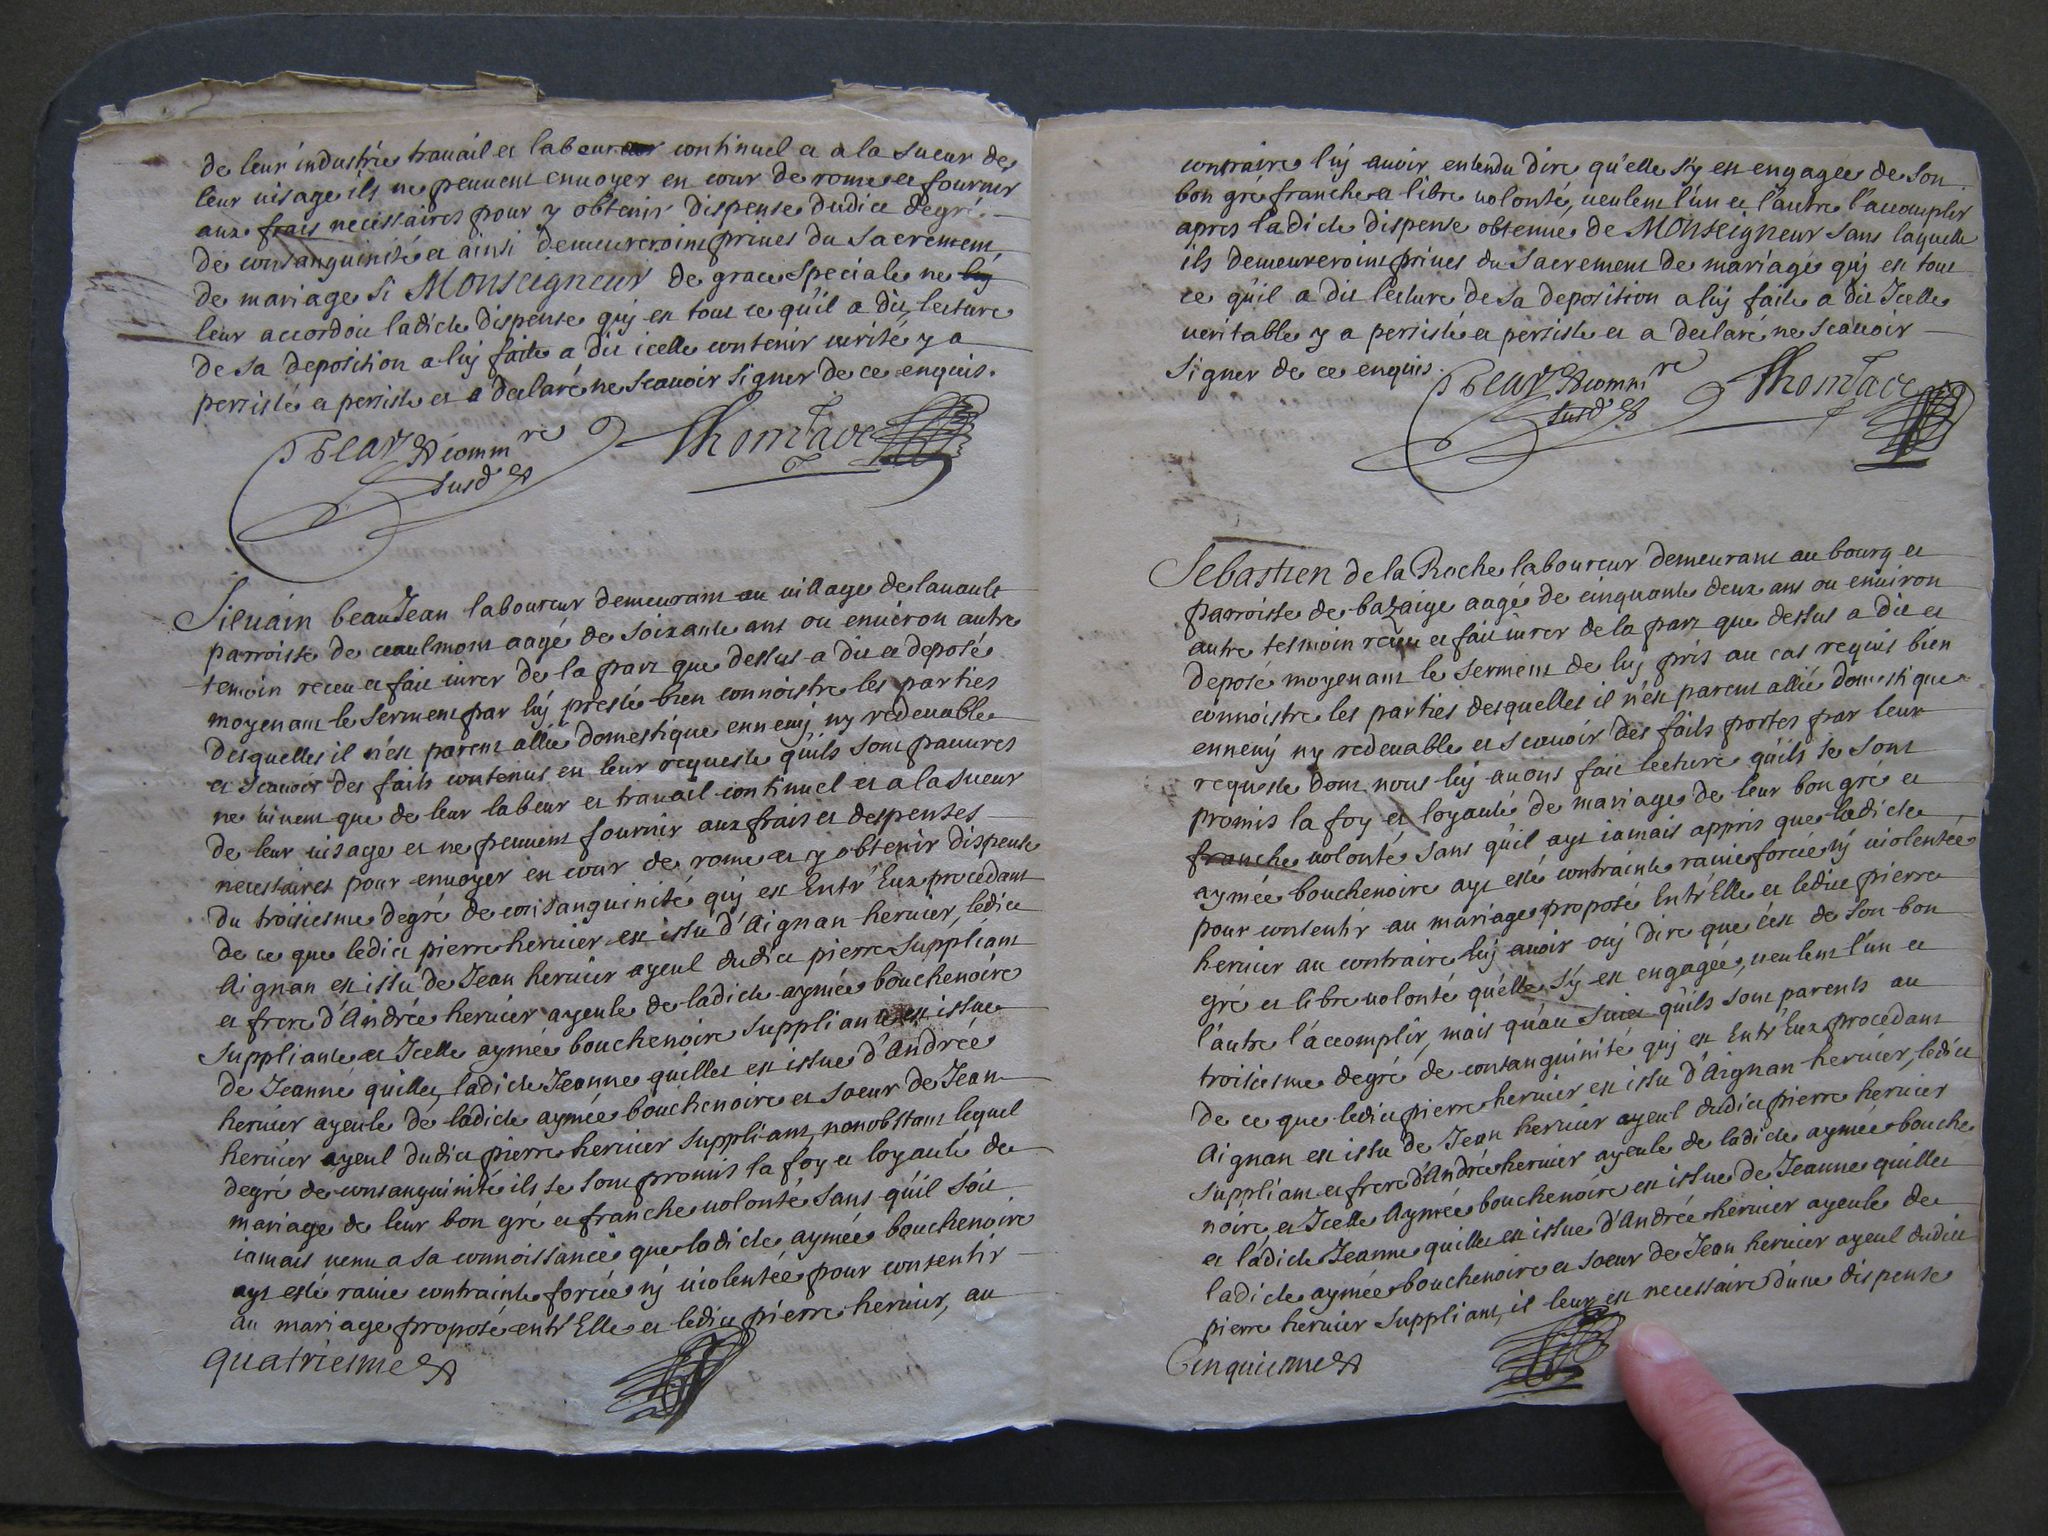 de leur industrie trauail et labeur continuel et a la sueur de
leur uisage ils ne peuuent enuoyer en cour de rome et fournir
aux frais necessaires pour y obtenir dispense dudict degré
de consanguinité et ainsi demeureroient priues du sacrement
de mariage si Monseigneur de grace speciale ne
leur accordoit ladicte dispense qui est tout ce qu'il a dit, lecture
de sa deposition a luy faite a dit icelle contenir uerité y a
persisté et persiste et a declaré ne scauoir signer de ce enquis.
comm re
susd
Siluain beauJean laboureur demeurant au uillage de lauault
parroisse de ceaulmont aagé de soixante ans ou enuiron autre
temoin receu et fait iurer de la part que dessus a dit et deposé
moyenant le serment par luy presté bien connoistre les parties
desquelles il n'est parent allié domestique ennemj ny redeuable
et scauoir des faits contenus en leur requeste qu'ils sont pauures
ne uiuent que de leur labeur et trauail continuel et a la sueur
de leur uisage et ne peuuent fournir aux frais et despenses
necessaires pour enuoyer en cour de rome et y obtenir dispense
du troisiesme degré de consanguinité qui est Entr'Eux procedant
de ce que ledict pierre heruier est issu d'Aignan heruier, ledict
Aignan est issu de Jean heruier ayeul dudict pierre suppliant
et frere d'Andrée heruier ayeule de ladicte aymée bouchenoire
suppliante et Icelle aymée bouchenoire suppliante est issue
de Jeanne quillet, ladicte Jeanne quillet est issue d'Andrée
heruier ayeule de ladicte aymée bouchenoire et soeur de Jean
heruier ayeul dudict pierre heruier suppliant, nonobstant lequel
degré de consanguinité ils se sont promis la foy et loyauté de
mariage de leur bon gré et franche uolonté sans qu'il soit
iamais uenu a sa connoissance que ladicte aymée bouchenoire
ayt esté rauie contrainte forcée nj uiolentée pour consentir
au mariage proposé entr'Elle et ledict pierre heruier, au
quatriesme
contraire luy auoir entendu dire qu'elle s'y est engagée de son
bon gre franche et libre uolonté, ueulent l'un et l'autre l'accomplir
apres ladicte dispense obtenue de Monseigneur sans laquelle
ils demeureroient priues du sacrement de mariage qui est tout
ce qu'il a dit lecture de sa deposition a luy faite a dit Icelle
ueritable y a persisté et persiste et a declaré ne scauoir
signer de ce enquis.
comm re
susd
Sebastien de la Roche laboureur demeurant au bourg et
parroisse de bazaige aagé de cinquante deux ans ou enuiron
autre tesmoin receu et fait iurer de la part que dessus a dit et
deposé moyenant le serment de luy pris au cas requis bien
connoistre les parties desquelles il n'est parent allié domestique
ennemy ny redeuable et scauoir des faits portes par leur
requeste dont nous luy auons fait lecture qu'ils se sont
promis la foy et loyauté de mariage de leur bon gré et
franche uolonté sans qu'il ayt iamais appris que ladicte
aymée bouchenoire ayt esté contrainte rauie forcée nj uiolentée
pour consentir au mariage proposé Entr'Elle et ledict pierre
heruier au contraire luy auoir ouj dire que c'est de son bon
gré et libre uolonté qu'elle s'y est engagée, ueulent l'un et
l'autre l'accomplir, mais qu'au qu'ils sont parents au
troisiesme degré de consanguinité qui est Entr'Eux procedant
de ce que ledict pierre heruier est issu d'Aignan heruier, ledict
Aignan est issu de Jean heruier ayeul dudict pierre heruier
suppliant et frere d'Andrée heruier ayeule de ladicte aymée bouche
noire et Icelle Aymée bouchenoire est issue de Jeanne quillet
et ladicte Jeanne quillet est issue d'Andrée heruier ayeule de
ladicte aymée bouchenoire et soeur de Jean heruier ayeul dudict
pierre heruier suppliant, il leur est necessaire d'une dispense
Cinquiesme